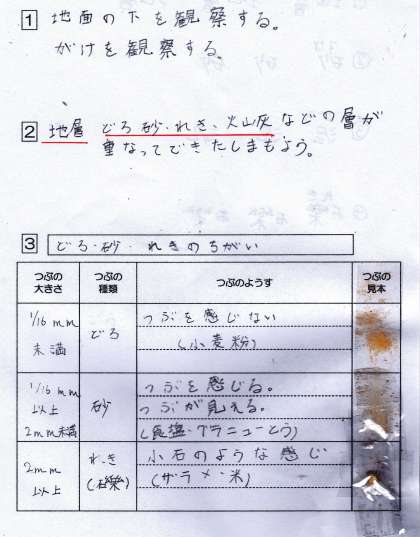 1 地面の下を観察する。
がけを観察する。
2 地層 どろ・砂・れき、火山灰などの層が
重なってできたしまもよう。
3 どろ・砂・れきのちがい
つぶの大きさ つぶの種類 つぶのようす つぶの見本
1/16mm未満 どろ つぶを感じない
(小麦粉)
1/16mm以上2mm未満 砂 つぶを感じる。
つぶが見える。
(食塩・グラニューとう)
2mm以上 れき(礫) 小石のような感じ
(ザラメ・米)